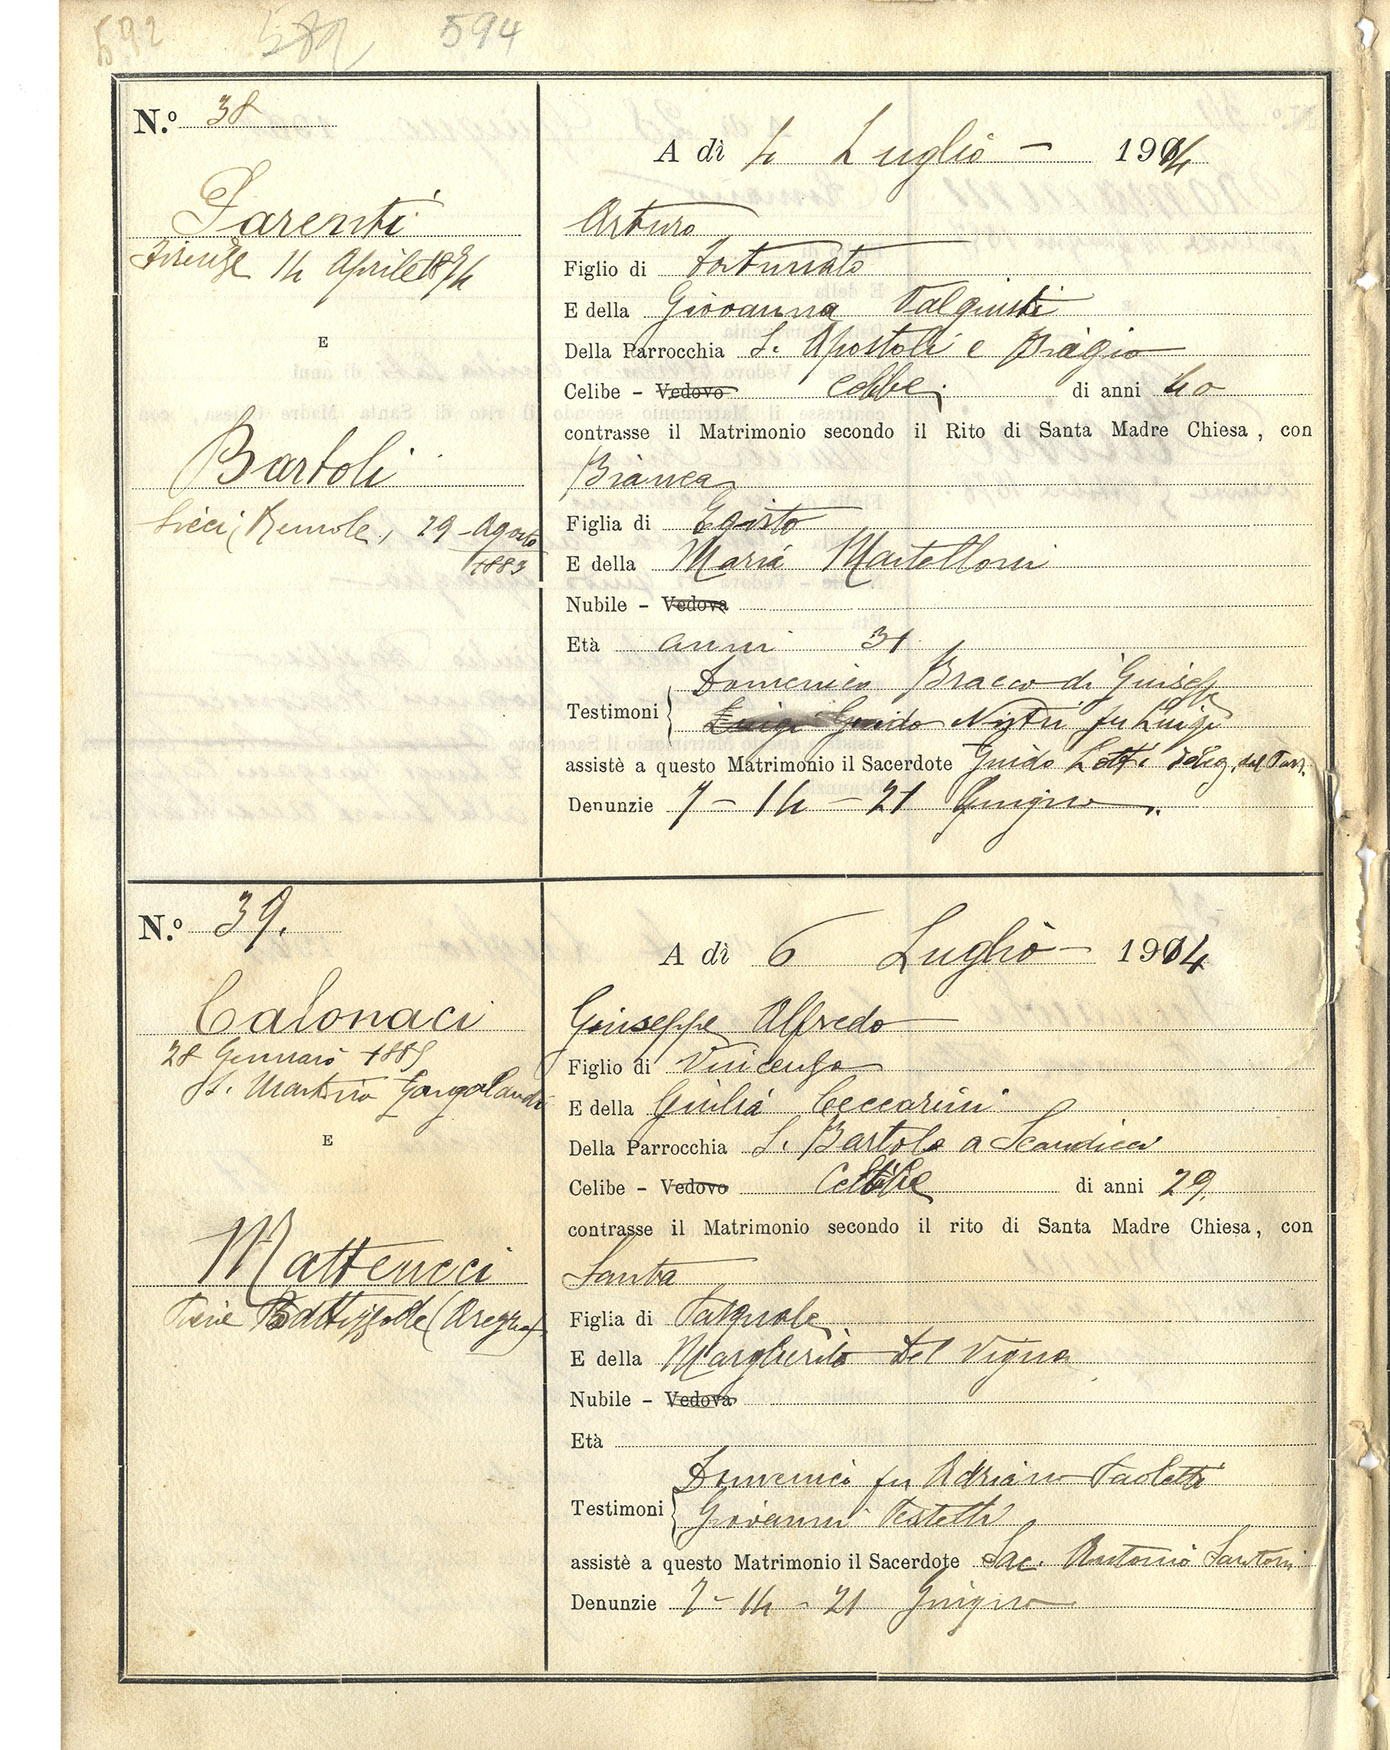 592 589 594
N.º 38
A dì 4 Luglio 1914
Parenti
Arturo
Firenze 14 Aprile 1874
Figlio di Fortunato
E della Giovanna Valgiusti
E
Della Parrocchia S. Apostoli e Biagio
Celibe - Vedovo celibe di anni 40
contrasse il Matrimonio secondo il Rito di Santa Madre Chiesa, con
Bartoli
Bianca
Sieci, Remole, 29 Agosto
1883
Figlia di Egisto
E della Maria Martelloni
Nubile - Vedova
Età anni 31
Testimoni { Domenico Bracco di Giuseppe
Luigi Guido Nistri fu Luigi
assistè a questo Matrimonio il Sacerdote Guido Lotti Deleg. dal Parr.
Denunzie 7 - 14 - 21 Giugno.
N.º 39.
A dì 6 Luglio 1914
Calonaci
Giuseppe Alfredo
28 Gennaio 1885
S. Martino Gangalandi
Figlio di Vincenzo
E della Giulia Ceccarini
E
Della Parrocchia S. Bartolo a Scandicci
Celibe - Vedovo Celibe di anni 29.
contrasse il Matrimonio secondo il rito di Santa Madre Chiesa, con
Matteucci
Santa
Pieve Battifolle (Arezzo)
Figlia di Pasquale
E della Margherita Del Vigna
Nubile - Vedova
Età
Testimoni { Domenico fu Adriano Paoletti
Giovanni Testelli
assistè a questo Matrimonio il Sacerdote Sac. Antonio Santoni
Denunzie 7 - 14 - 21 Giugno